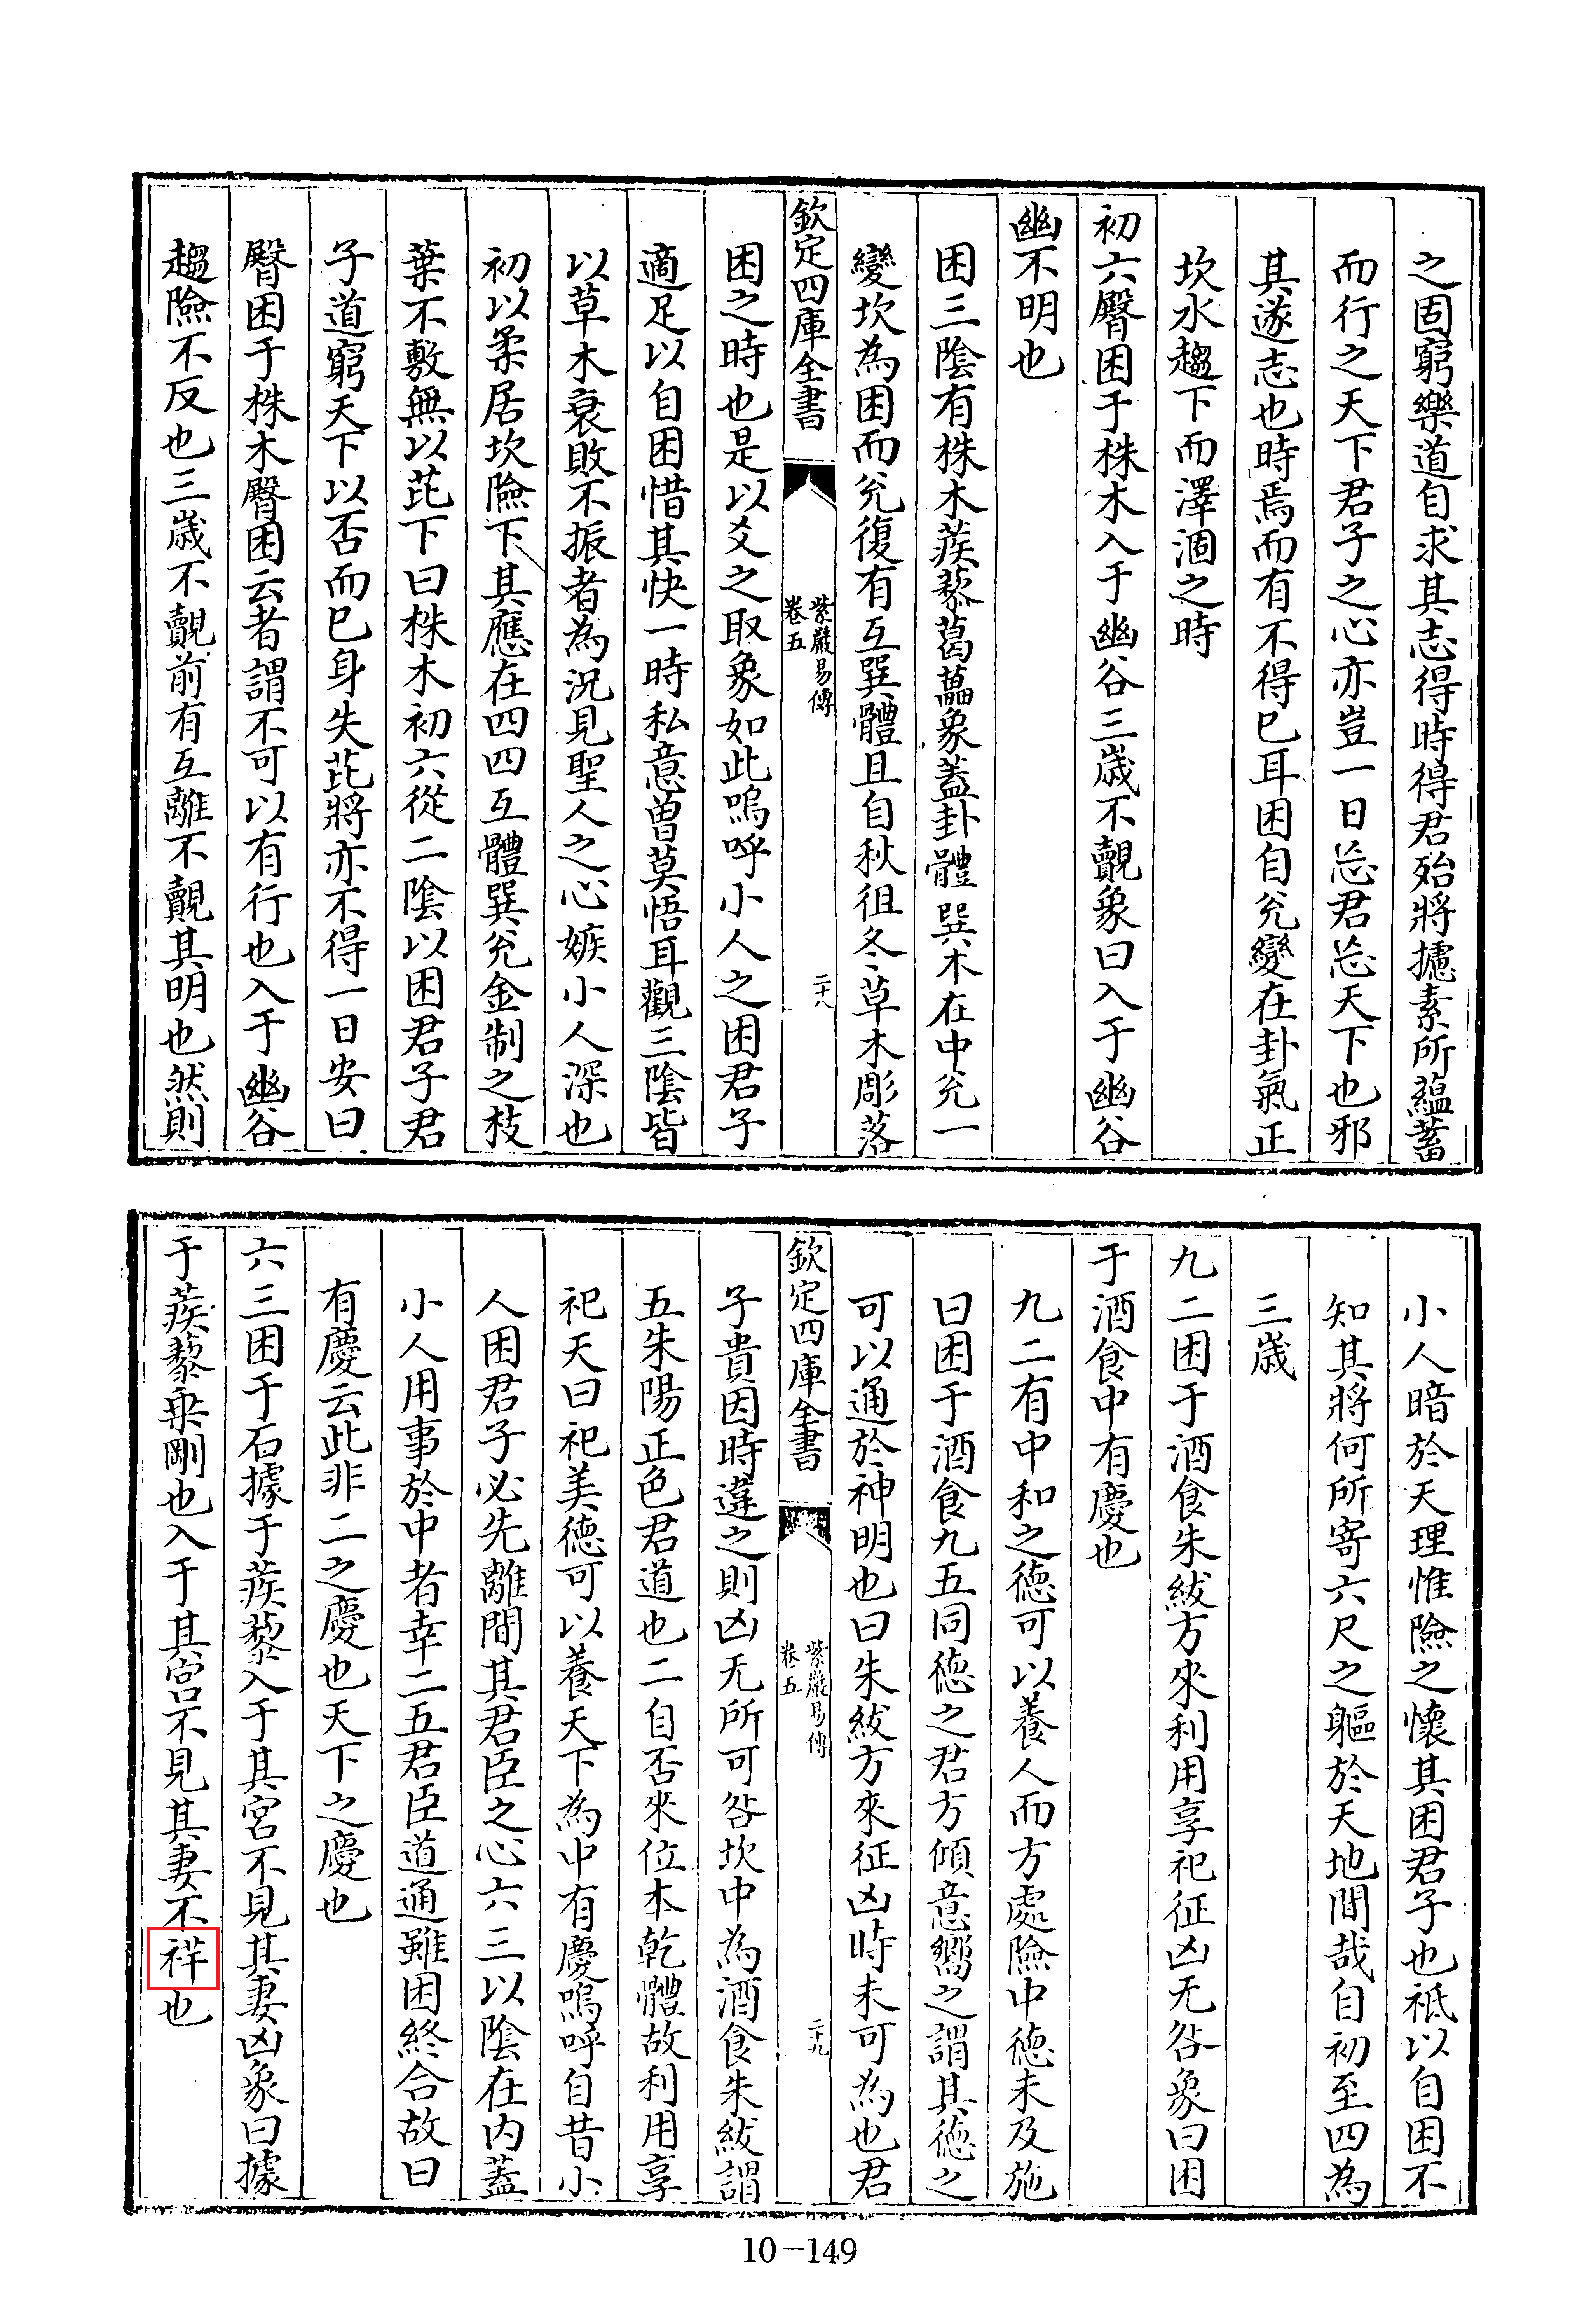 之固窮樂道自求其志得時得君殆將攄素所蘊蓄
而行之天下君子之心亦豈一日忘君忘天下也邪
其遂志也時焉而有不得已耳困自兊變在卦氣正
坎水趨下而澤涸之時
初六臀困于株木入于幽谷三歲不覿象曰入于幽谷
幽不明也
困三陰有株木蒺藜葛藟象蓋卦體巽木在中兊一
變坎為困而兊復有互巽體且自秋徂冬草木彫落
欽定四庫全書
紫巖易傳
卷五
二十八
困之時也是以爻之取象如此嗚呼小人之困君子
適足以自困惜其快一時私意曽莫悟耳觀三陰皆
以草木衰敗不振者為況見聖人之心嫉小人深也
初以柔居坎險下其應在四四互體巽兊金制之枝
葉不敷無以芘下曰株木初六從二陰以困君子君
子道窮天下以否而已身失芘將亦不得一日安曰
臀困于株木臀困云者謂不可以有行也入于幽谷
趨險不反也三歲不覿前有互離不覿其明也然則
小人暗於天理惟險之懷其困君子也祗以自困不
知其將何所寄六尺之軀於天地間哉自初至四為
三歲
九二困于酒食朱紱方來利用享祀征凶无咎象曰困
于酒食中有慶也
九二有中和之德可以養人而方處險中德未及施
曰困于酒食九五同德之君方傾意嚮之謂其德之
可以通於神明也曰朱紱方來征凶時未可為也君
欽定四庫全書
紫巖易傳
卷五
二十九
子貴因時違之則凶无所可咎坎中為酒食朱紱謂
五朱陽正色君道也二自否來位本乾體故利用享
祀天曰祀美德可以養天下為中有慶嗚呼自昔小
人困君子必先離間其君臣之心六三以陰在內蓋
小人用事於中者幸二五君臣道通雖困終合故曰
有慶云此非二之慶也天下之慶也
六三困于石據于蒺藜入于其宮不見其妻凶象曰據
于蒺藜乗剛也入于其宮不見其妻不祥也
10-149